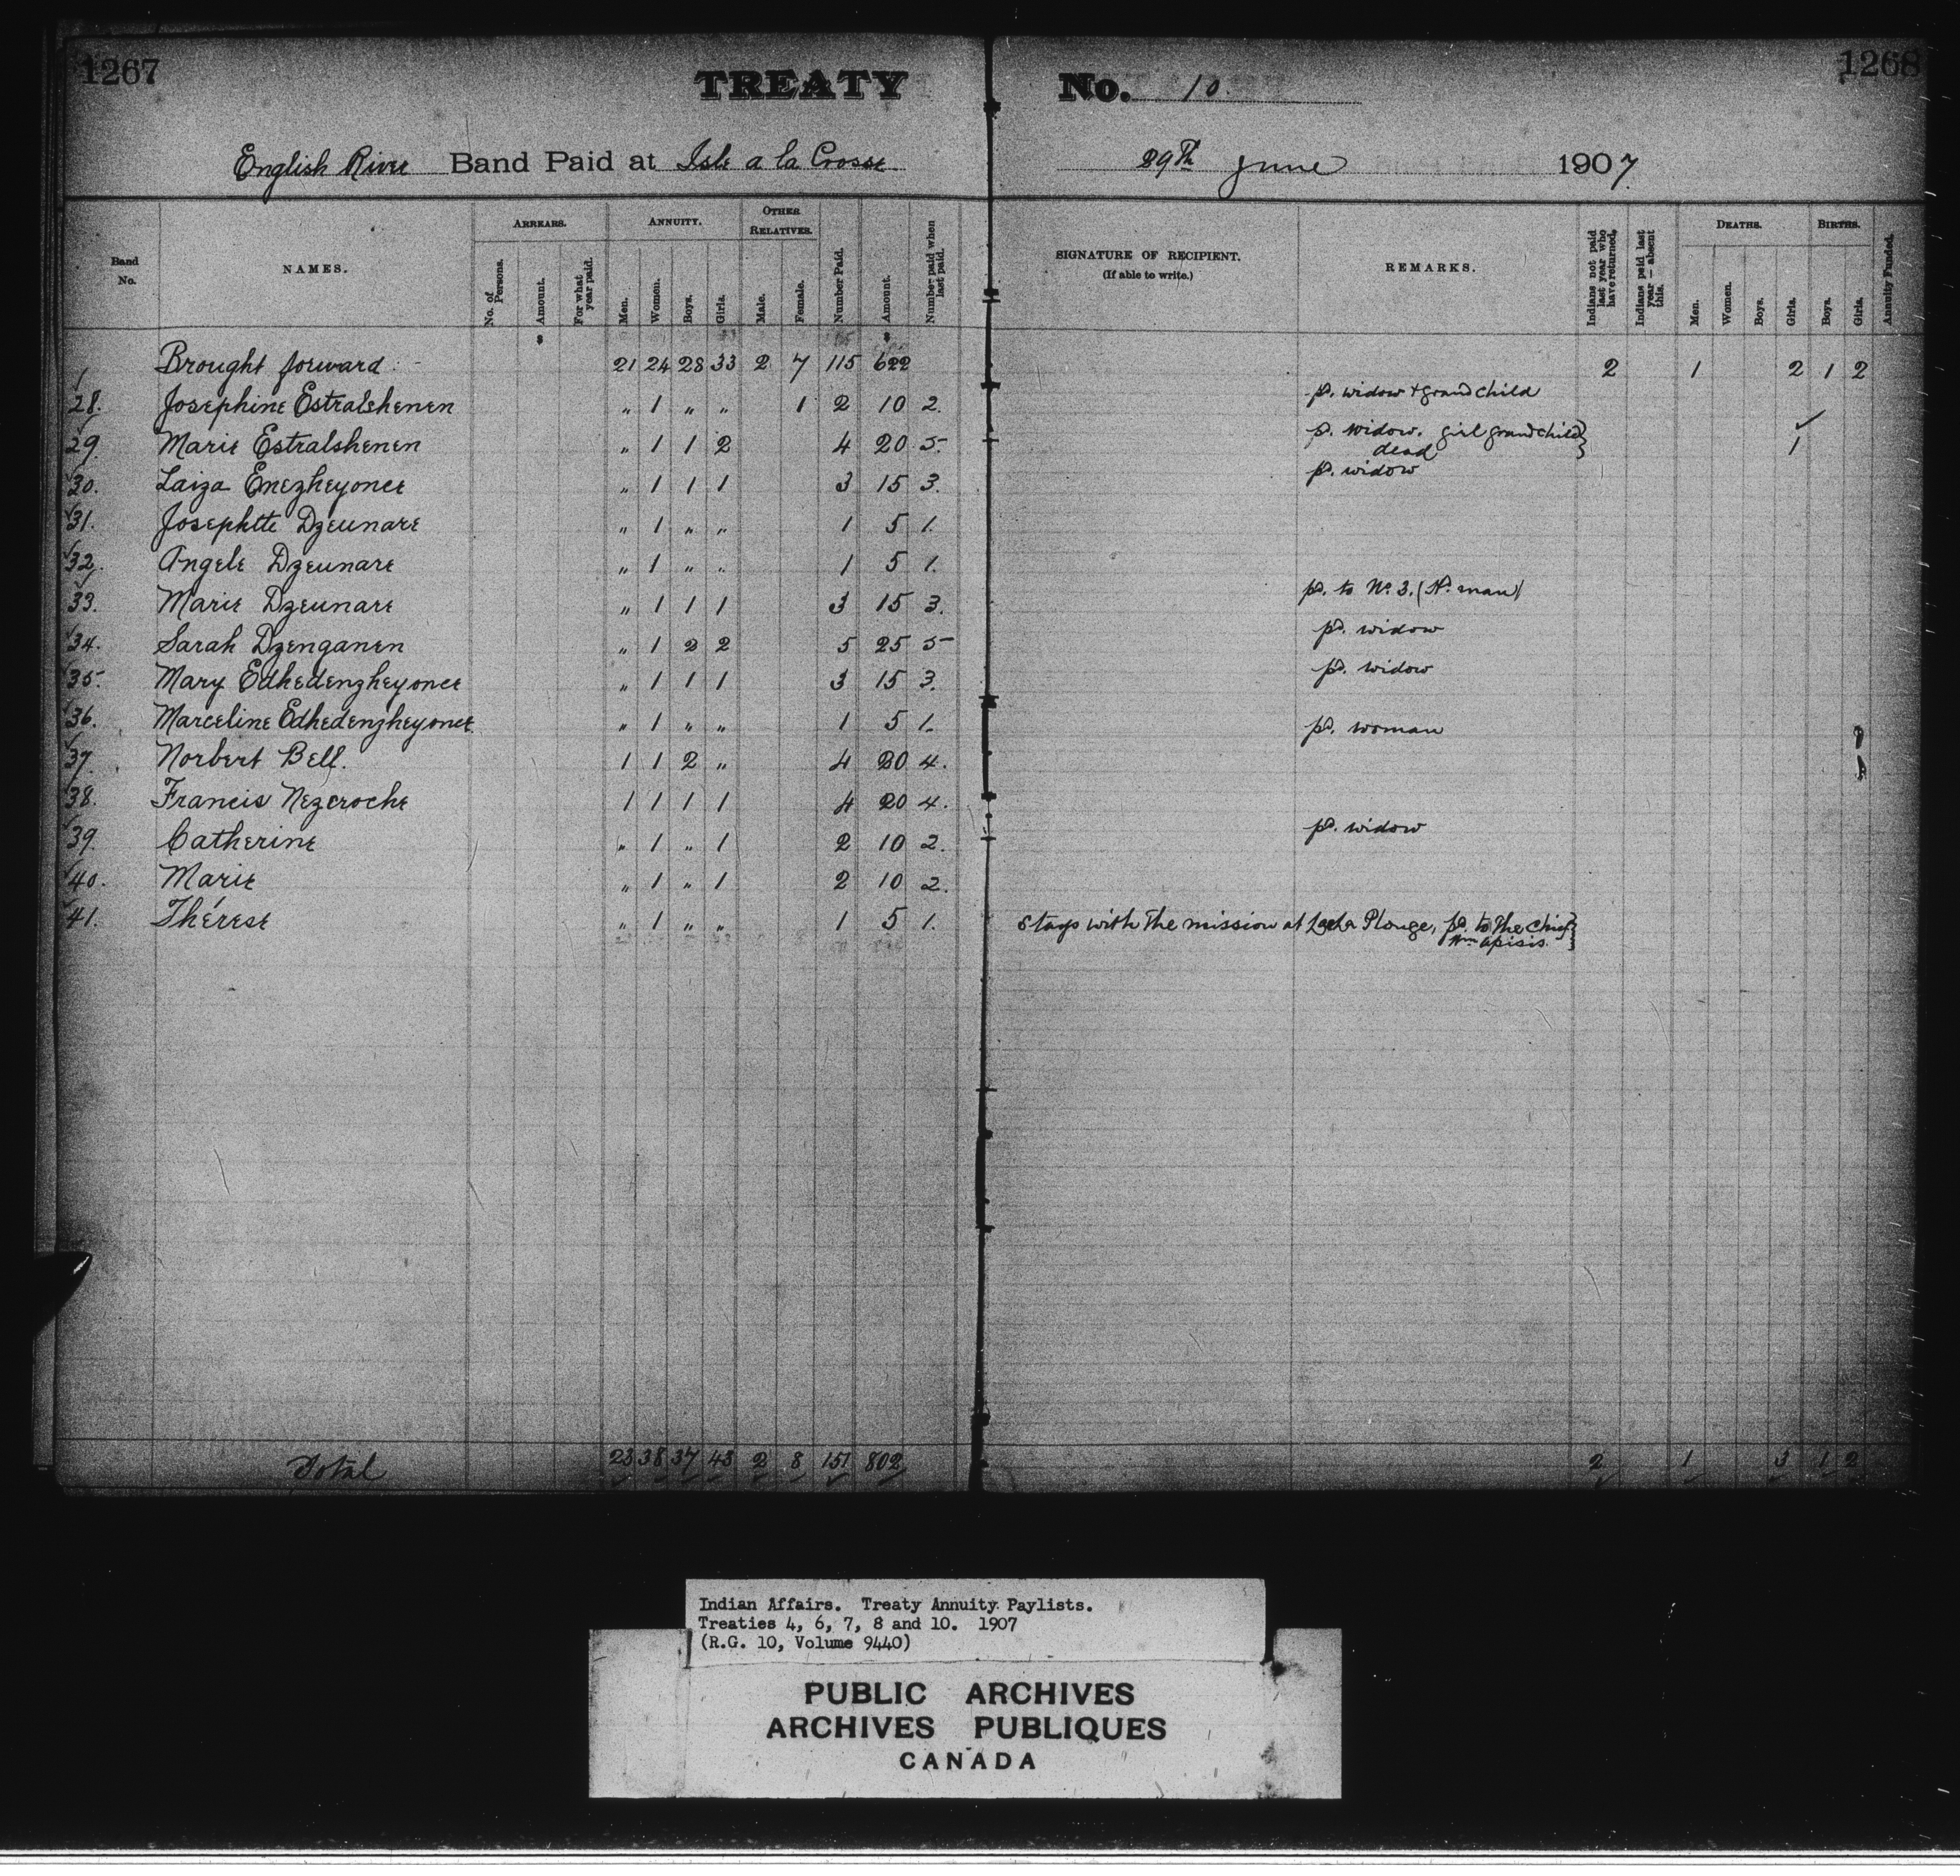 1267 1268
TREATY No. 10.
English River Band Paid at Isle a la Crosse 29th June 1907
Band No. NAMES. ARREARS. No. of Persons. Amount. For what year paid. ANNUITY. Men. Women. Boys. Girls. OTHER RELATIVES. Male. Female. Number Paid. Amount. Number paid when last paid. SIGNATURE OF RECIPIENT. (If able to write.) REMARKS. Indians not paid last year who have returned. Indians paid last year — absent this. DEATHS. Men. Women. Boys. Girls. BIRTHS. Boys. Girls. Annuity Funded.
$ $
Brought forward 21 24 28 33 2 7 115 622 2 1 2 1 2
28. Josephine Estralshenen " 1 " " 1 2 10 2. pd. widow + grand child
29. Marie Estralshenen " 1 1 2 4 20 5. pd. widow. girl grandchild} dead 1
30. Laiza Enezheyonce " 1 1 1 3 15 3. pd. widow
31. Josephte Dzeunare " 1 " " 1 5 1.
32. Angele Dzeunare " 1 " " 1 5 1.
33. Marie Dzeunare " 1 1 1 3 15 3. pd. to No. 3. (Hd. man)
34. Sarah Dzenganen " 1 2 2 5 25 5 pd. widow
35. Mary Edhedenzheyonce " 1 1 1 3 15 3. pd. widow
36. Marceline Edhedenzheyonce " 1 " " 1 5 1. pd. woman
37. Norbert Bell. 1 1 2 " 4 20 4.
38. Francis Nezcroche 1 1 1 1 4 20 4.
39. Catherine " 1 " 1 2 10 2. pd. widow
40. Marie " 1 " 1 2 10 2.
41. Thérese " 1 " " 1 5 1. Stays with the mission at Plonge, pd. to the Chief} Wm. Apisis.
Total 23 38 37 43 2 8 151 802 2 1 3 1 2
Indian Affairs. Treaty Annuity Paylists.
Treaties 4, 6, 7, 8 and 10. 1907
(R.G. 10, Volume 9440)
PUBLIC ARCHIVES
ARCHIVES PUBLIQUES
CANADA